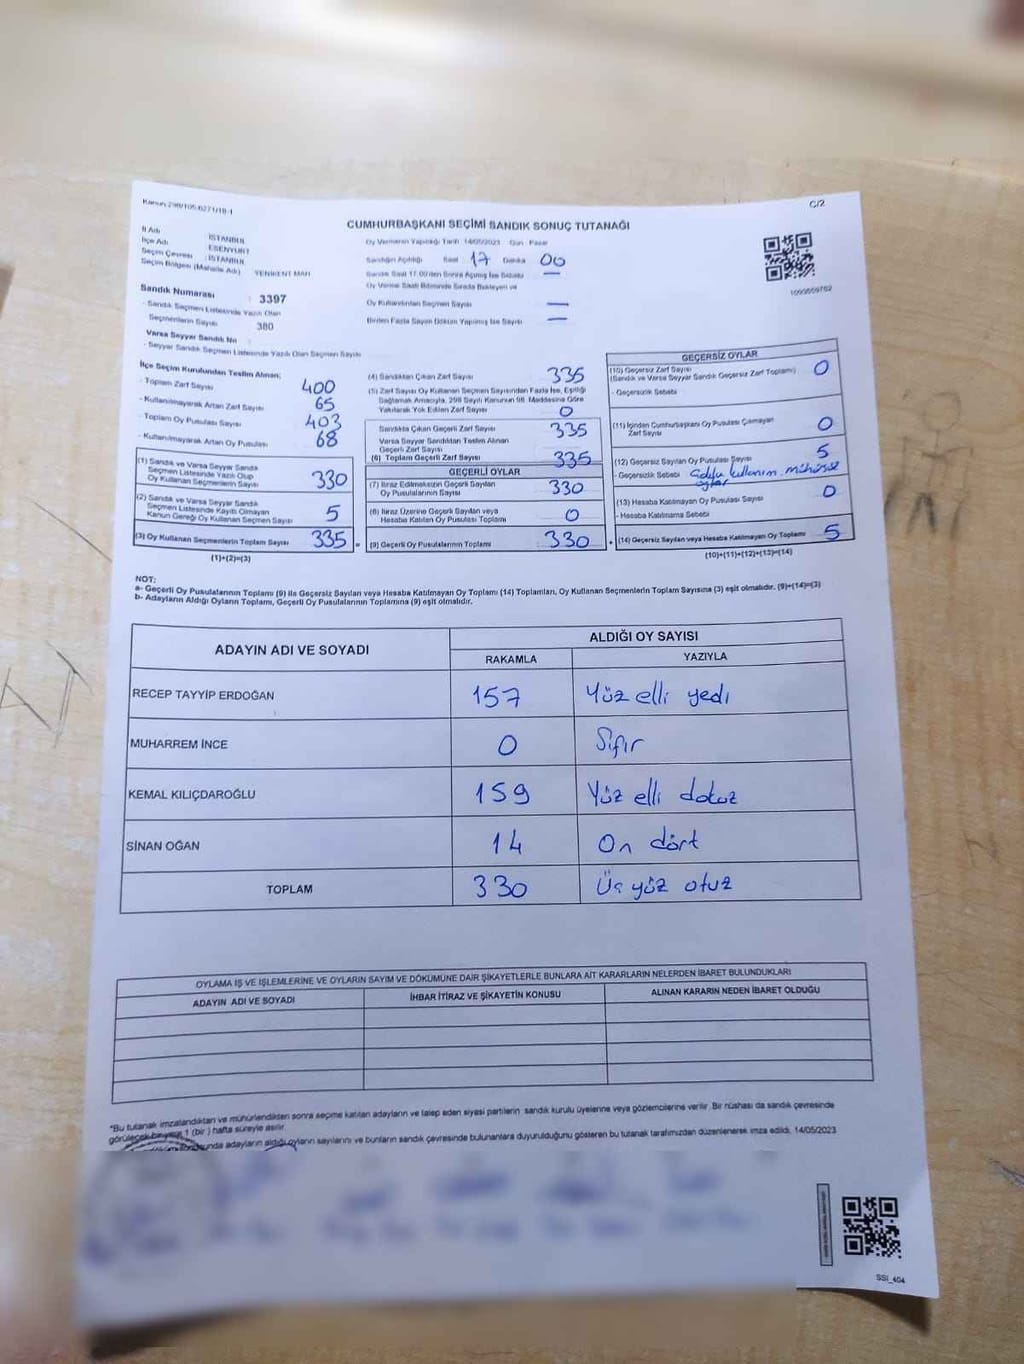 Kanun:298/105;6271/18-1
C/2
CUMHURBAŞKANI SEÇİMİ SANDIK SONUÇ TUTANAĞI
İl Adı : İSTANBUL
İlçe Adı : ESENYURT
Seçim Çevresi : İSTANBUL
Seçim Bölgesi (Mahalle Adı) YENİKENT MAH
Sandık Numarası : 3397
- Sandık Seçmen Listesinde Yazılı Olan
Seçmenlerin Sayısı 380
Varsa Seyyar Sandık No :
- Seyyar Sandık Seçmen Listesinde Yazılı Olan Seçmen Sayısı
Oy Vermenin Yapıldığı Tarih 14/05/2023 Gün : Pazar
Sandığın Açıldığı Saat : 17 Dakika 00
Sandık Saat 17.00'den Sonra Açılmış İse Sebebi —
Oy Verme Saati Bitiminde Sırada Bekleyen ve
Oy Kullandırılan Seçmen Sayısı —
Birden Fazla Sayım Döküm Yapılmış İse Sayısı —
İlçe Seçim Kurulundan Teslim Alınan;
- Toplam Zarf Sayısı 400
- Kullanılmayarak Artan Zarf Sayısı 65
- Toplam Oy Pusulası Sayısı 403
- Kullanılmayarak Artan Oy Pusulası 68
(1) Sandık ve Varsa Seyyar Sandık
Seçmen Listesinde Yazılı Olup
Oy Kullanan Seçmenlerin Sayısı 330
(2) Sandık ve Varsa Seyyar Sandık
Seçmen Listesinde Kayıtlı Olmayan
Kanun Gereği Oy Kullanan Seçmen Sayısı 5
(3) Oy Kullanan Seçmenlerin Toplam Sayısı 335
(1)+(2)=(3)
(4) Sandıktan Çıkan Zarf Sayısı 335
(5) Zarf Sayısı Oy Kullanan Seçmen Sayısından Fazla İse, Eşitliği
Sağlamak Amacıyla, 298 Sayılı Kanunun 98. Maddesine Göre
Yakılarak Yok Edilen Zarf Sayısı 0
Sandıkta Çıkan Geçerli Zarf Sayısı 335
Varsa Seyyar Sandıktan Teslim Alınan
Geçerli Zarf Sayısı
(6) Toplam Geçerli Zarf Sayısı 335
GEÇERLİ OYLAR
(7) İtiraz Edilmeksizin Geçerli Sayılan
Oy Pusulalarının Sayısı 330
(8) İtiraz Üzerine Geçerli Sayılan veya
Hesaba Katılan Oy Pusulası Toplamı 0
(9) Geçerli Oy Pusulalarının Toplamı 330
GEÇERSİZ OYLAR
(10) Geçersiz Zarf Sayısı
(Sandık ve Varsa Seyyar Sandık Geçersiz Zarf Toplamı) 0
- Geçersizlik Sebebi
(11) İçinden Cumhurbaşkanı Oy Pusulası Çıkmayan
Zarf Sayısı 0
(12) Geçersiz Sayılan Oy Pusulası Sayısı 5
- Geçersizlik Sebebi
(13) Hesaba Katılmayan Oy Pusulası Sayısı 0
- Hesaba Katılmama Sebebi
(14) Geçersiz Sayılan veya Hesaba Katılmayan Oy Toplamı 5
(10)+(11)+(12)+(13)=(14)
NOT:
a- Geçerli Oy Pusulalarının Toplamı (9) ile Geçersiz Sayılan veya Hesaba Katılmayan Oy Toplamı (14) Toplamları, Oy Kullanan Seçmenlerin Toplam Sayısına (3) eşit olmalıdır. (9)+(14)=(3)
b- Adayların Aldığı Oyların Toplamı, Geçerli Oy Pusulalarının Toplamına (9) eşit olmalıdır.
ADAYIN ADI VE SOYADI
ALDIĞI OY SAYISI
RAKAMLA YAZIYLA
RECEP TAYYİP ERDOĞAN 157 Yüz elli yedi
MUHARREM İNCE 0 Sıfır
KEMAL KILIÇDAROĞLU 159 Yüz elli dokuz
SİNAN OĞAN 14 On dört
TOPLAM 330 Üç yüz otuz
OYLAMA İŞ VE İŞLEMLERİNE VE OYLARIN SAYIM VE DÖKÜMÜNE DAİR ŞİKAYETLERLE BUNLARA AİT KARARLARIN NELERDEN İBARET BULUNDUKLARI
ADAYIN ADI VE SOYADI İHBAR İTİRAZ VE ŞİKAYETİN KONUSU ALINAN KARARIN NEDEN İBARET OLDUĞU
*Bu tutanak imzalandıktan ve mühürlendikten sonra seçime katılan adayların ve talep eden siyasi partilerin sandık kurulu üyelerine veya gözlemcilerine verilir. Bir nüshası da sandık çevresinde
görülecek bir yere 1 (bir) hafta süreyle asılır.
adayların aldığı oyların sayılarını ve bunların sandık çevresinde bulunanlara duyurulduğunu gösteren bu tutanak tarafımızdan düzenlenerek imza edildi. 14/05/2023
SSI_404